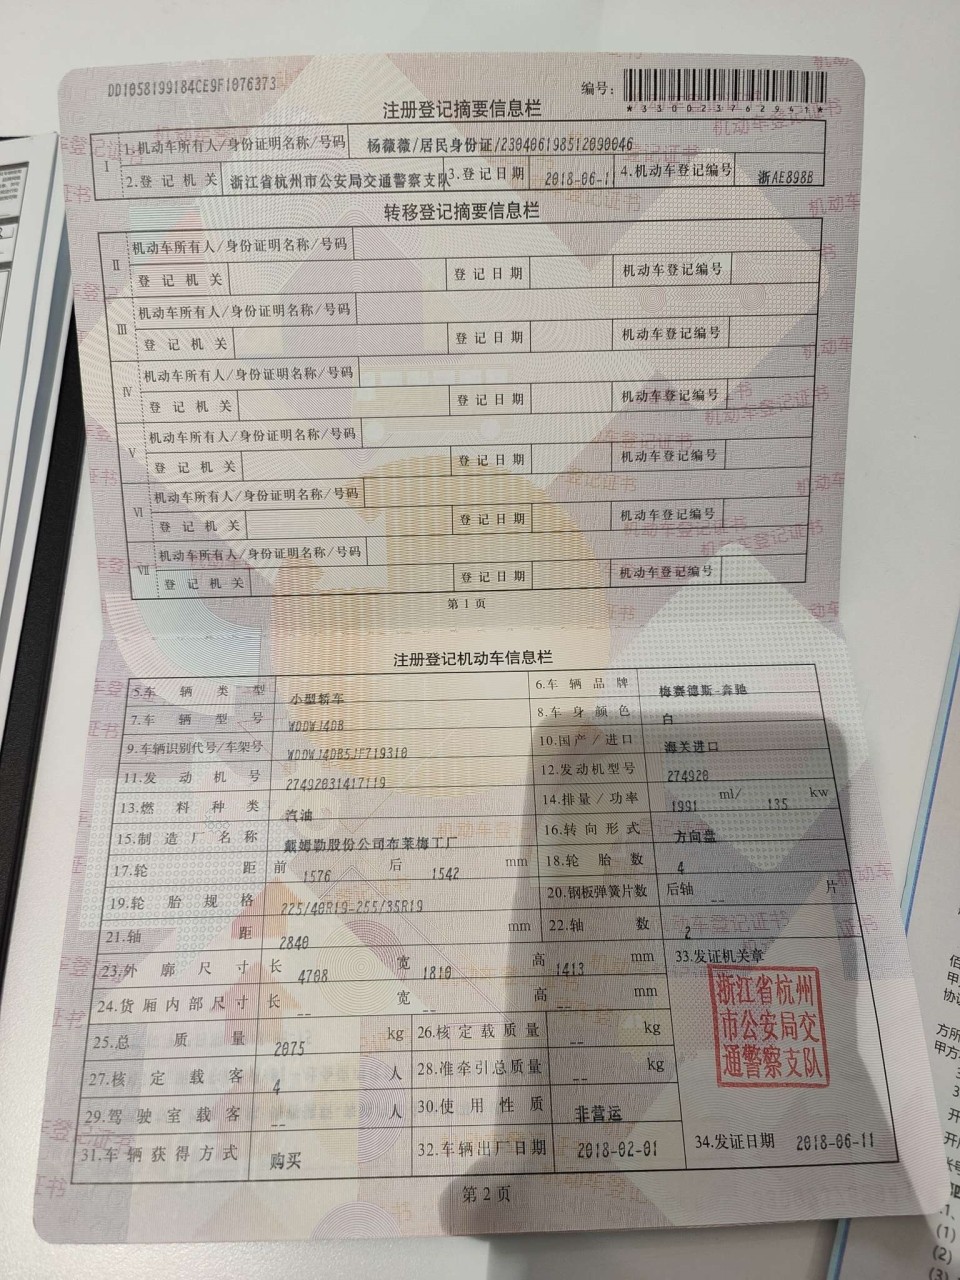 DD1058199184CE9F1076373
编号：
*330023762941*
注册登记摘要信息栏
1 1.机动车所有人/身份证明名称/号码 杨薇薇/居民身份证/230406198512090046
2.登记机关 浙江省杭州市公安局交通警察支队 3.登记日期 2018-06-11 4.机动车登记编号 浙AE898B
转移登记摘要信息栏
Ⅱ 机动车所有人/身份证明名称/号码
登记机关 登记日期 机动车登记编号
Ⅲ 机动车所有人/身份证明名称/号码
登记机关 登记日期 机动车登记编号
Ⅳ 机动车所有人/身份证明名称/号码
登记机关 登记日期 机动车登记编号
Ⅴ 机动车所有人/身份证明名称/号码
登记机关 登记日期 机动车登记编号
Ⅵ 机动车所有人/身份证明名称/号码
登记机关 登记日期 机动车登记编号
Ⅶ 机动车所有人/身份证明名称/号码
登记机关 登记日期 机动车登记编号
第1页
注册登记机动车信息栏
5.车辆类型 小型轿车 6.车辆品牌 梅赛德斯-奔驰
7.车辆型号 WDDWJ4DB 8.车身颜色 白
9.车辆识别代号/车架号 WDDWJ4DB5JF719310 10.国产/进口 海关进口
11.发动机号 27492031417119 12.发动机型号 274920
13.燃料种类 汽油 14.排量/功率 1991 ml/ 135 kw
15.制造厂名称 戴姆勒股份公司布莱梅工厂 16.转向形式 方向盘
17.轮距 前 1576 后 1542 mm 18.轮胎数 4
19.轮胎规格 225/40R19-255/35R19 20.钢板弹簧片数 后轴 -- 片
21.轴距 2840 mm 22.轴数 2
23.外廓尺寸 长 4708 宽 1810 高 1413 mm 33.发证机关章
24.货厢内部尺寸 长 -- 宽 -- 高 -- mm
浙江省杭州
市公安局交
通警察支队
25.总质量 2075 kg 26.核定载质量 -- kg
27.核定载客 4 人 28.准牵引总质量 -- kg
29.驾驶室载客 -- 人 30.使用性质 非营运
31.车辆获得方式 购买 32.车辆出厂日期 2018-02-01 34.发证日期 2018-06-11
第2页